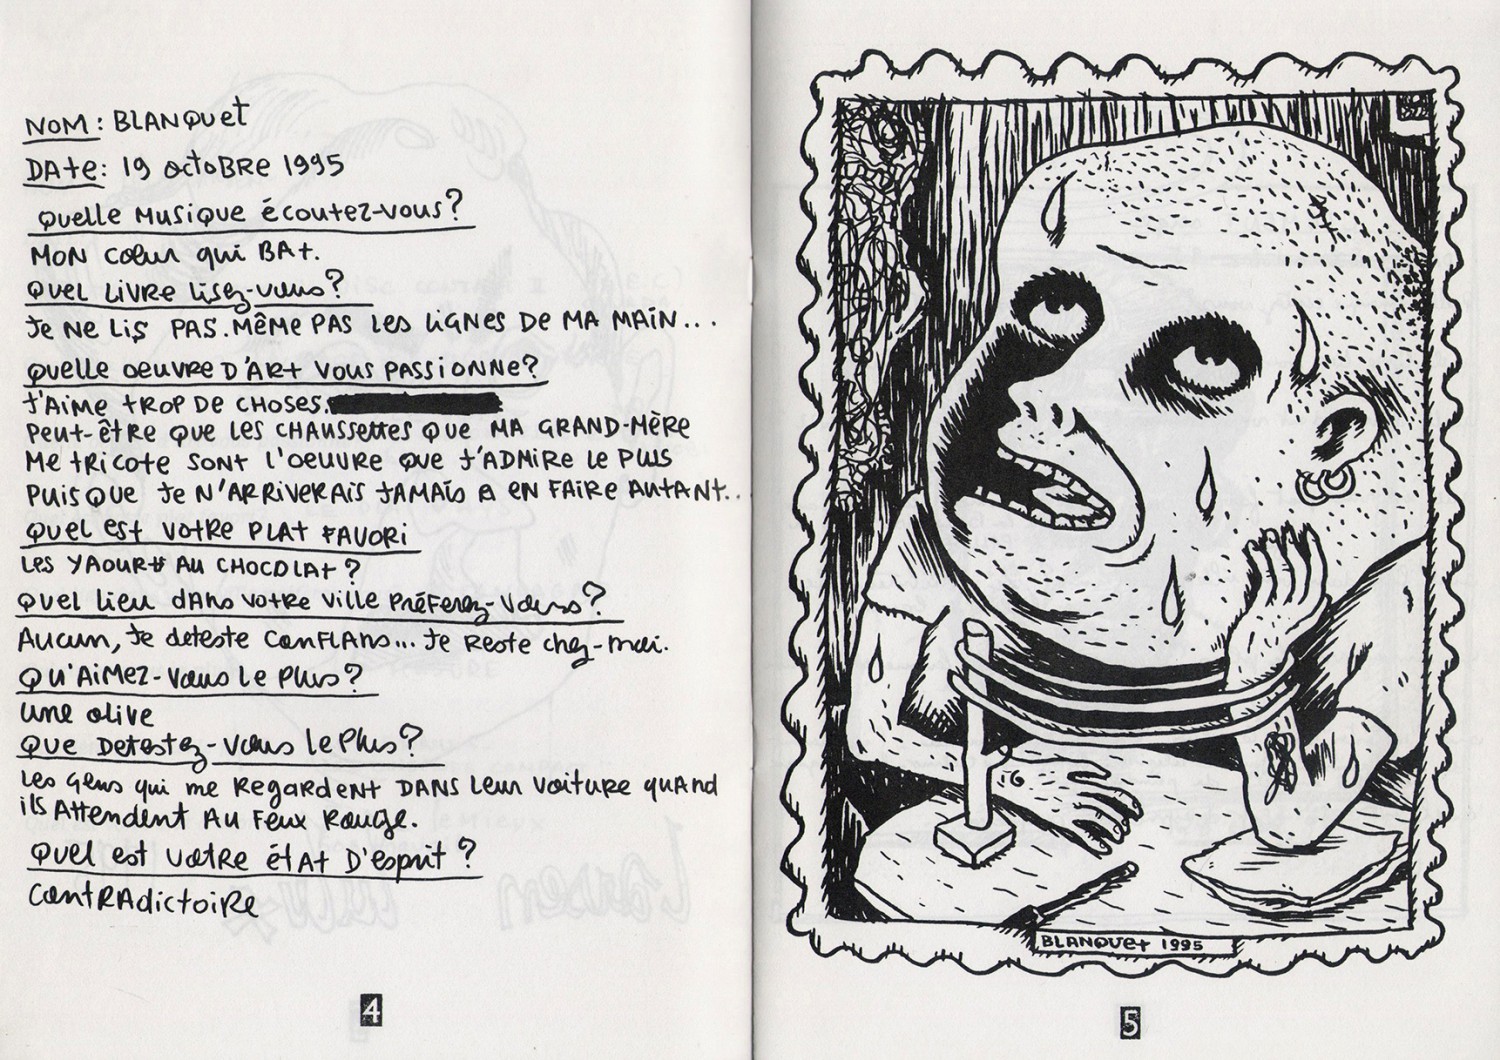 NOM : BLANQUET
DATE : 19 OCTOBRE 1995
QUELLE MUSIQUE ÉCOUTEZ-VOUS ?
MON CŒUR QUI BAT.
QUEL LIVRE LISEZ-VOUS ?
JE NE LIS PAS. MÊME PAS LES LIGNES DE MA MAIN...
QUELLE OEUVRE D'ART VOUS PASSIONNE ?
J'AIME TROP DE CHOSES.
PEUT-ÊTRE QUE LES CHAUSSETTES QUE MA GRAND-MÈRE
ME TRICOTE SONT L'OEUVRE QUE J'ADMIRE LE PLUS
PUISQUE JE N'ARRIVERAIS JAMAIS A EN FAIRE AUTANT..
QUEL EST VOTRE PLAT FAVORI
LES YAOURT AU CHOCOLAT ?
QUEL LIEU DANS VOTRE VILLE PRÉFEREZ-VOUS ?
AUCUN, JE DETESTE CONFLANS... JE RESTE CHEZ-MOI.
QU'AIMEZ-VOUS LE PLUS ?
UNE OLIVE
QUE DETESTEZ-VOUS LE PLUS ?
LES GENS QUI ME REGARDENT DANS LEUR VOITURE QUAND
ILS ATTENDENT AU FEUX ROUGE.
QUEL EST VOTRE ÉTAT D'ESPRIT ?
CONTRADICTOIRE
4
BLANQUET 1995
5